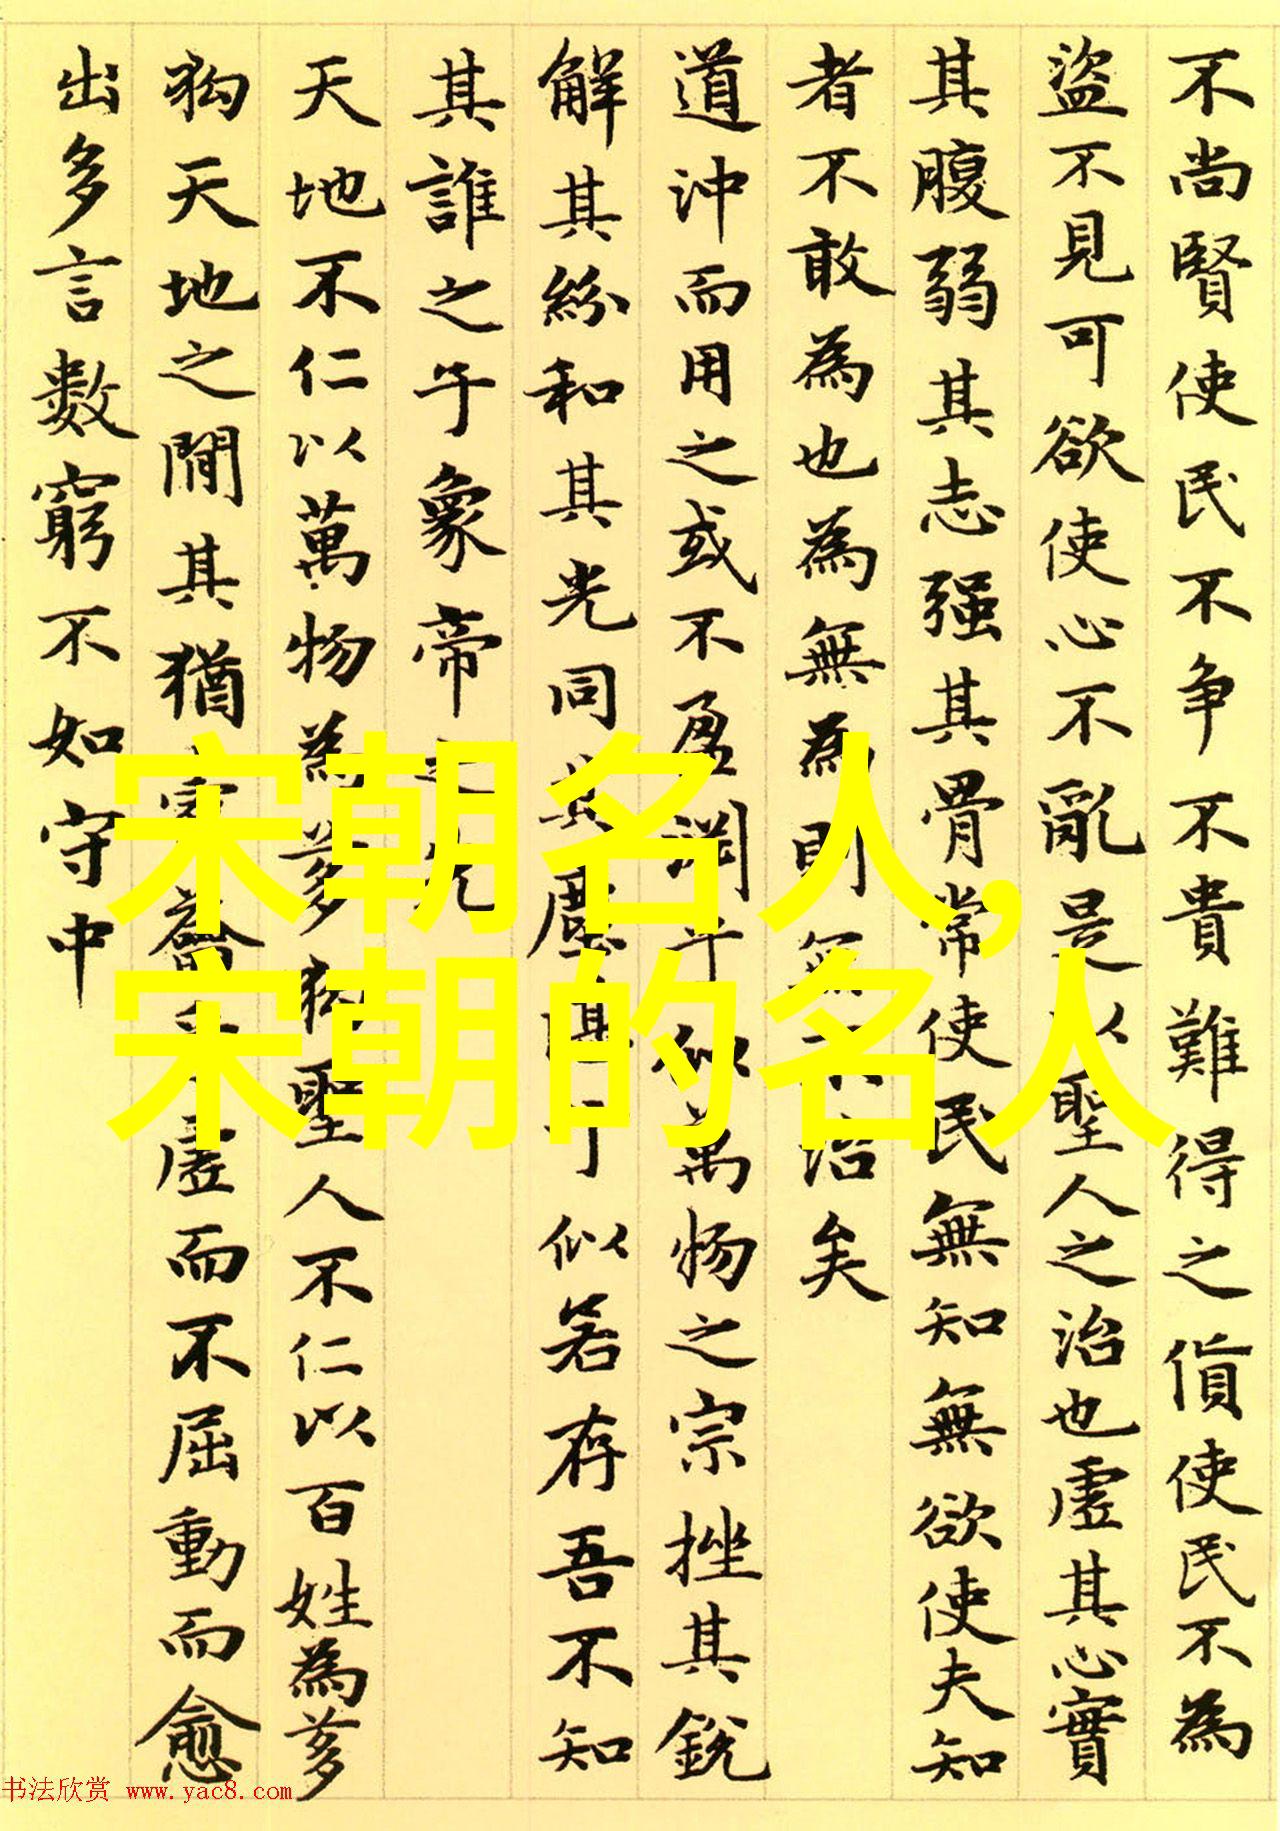 不尚賢使民不争不貴難得之貨使民不為
盜不見可欲使心不亂是以聖人之治也虛其心實
其腹弱其志强其骨常使民無知無欲使夫知
者不敢為也為無為則無不治矣
道沖而用之或不盈渊乎似萬物之宗挫其銳
解其紛和其光同其塵湛似若存吾不知
其誰之子象帝之先
天地不仁以萬物為芻狗聖人不仁以百姓為芻
狗天地之間其猶橐籥乎虛而不屈動而愈
出多言數窮不如守中
宋朝名人,
宋朝的名人
书法欣赏 www.yac8.com